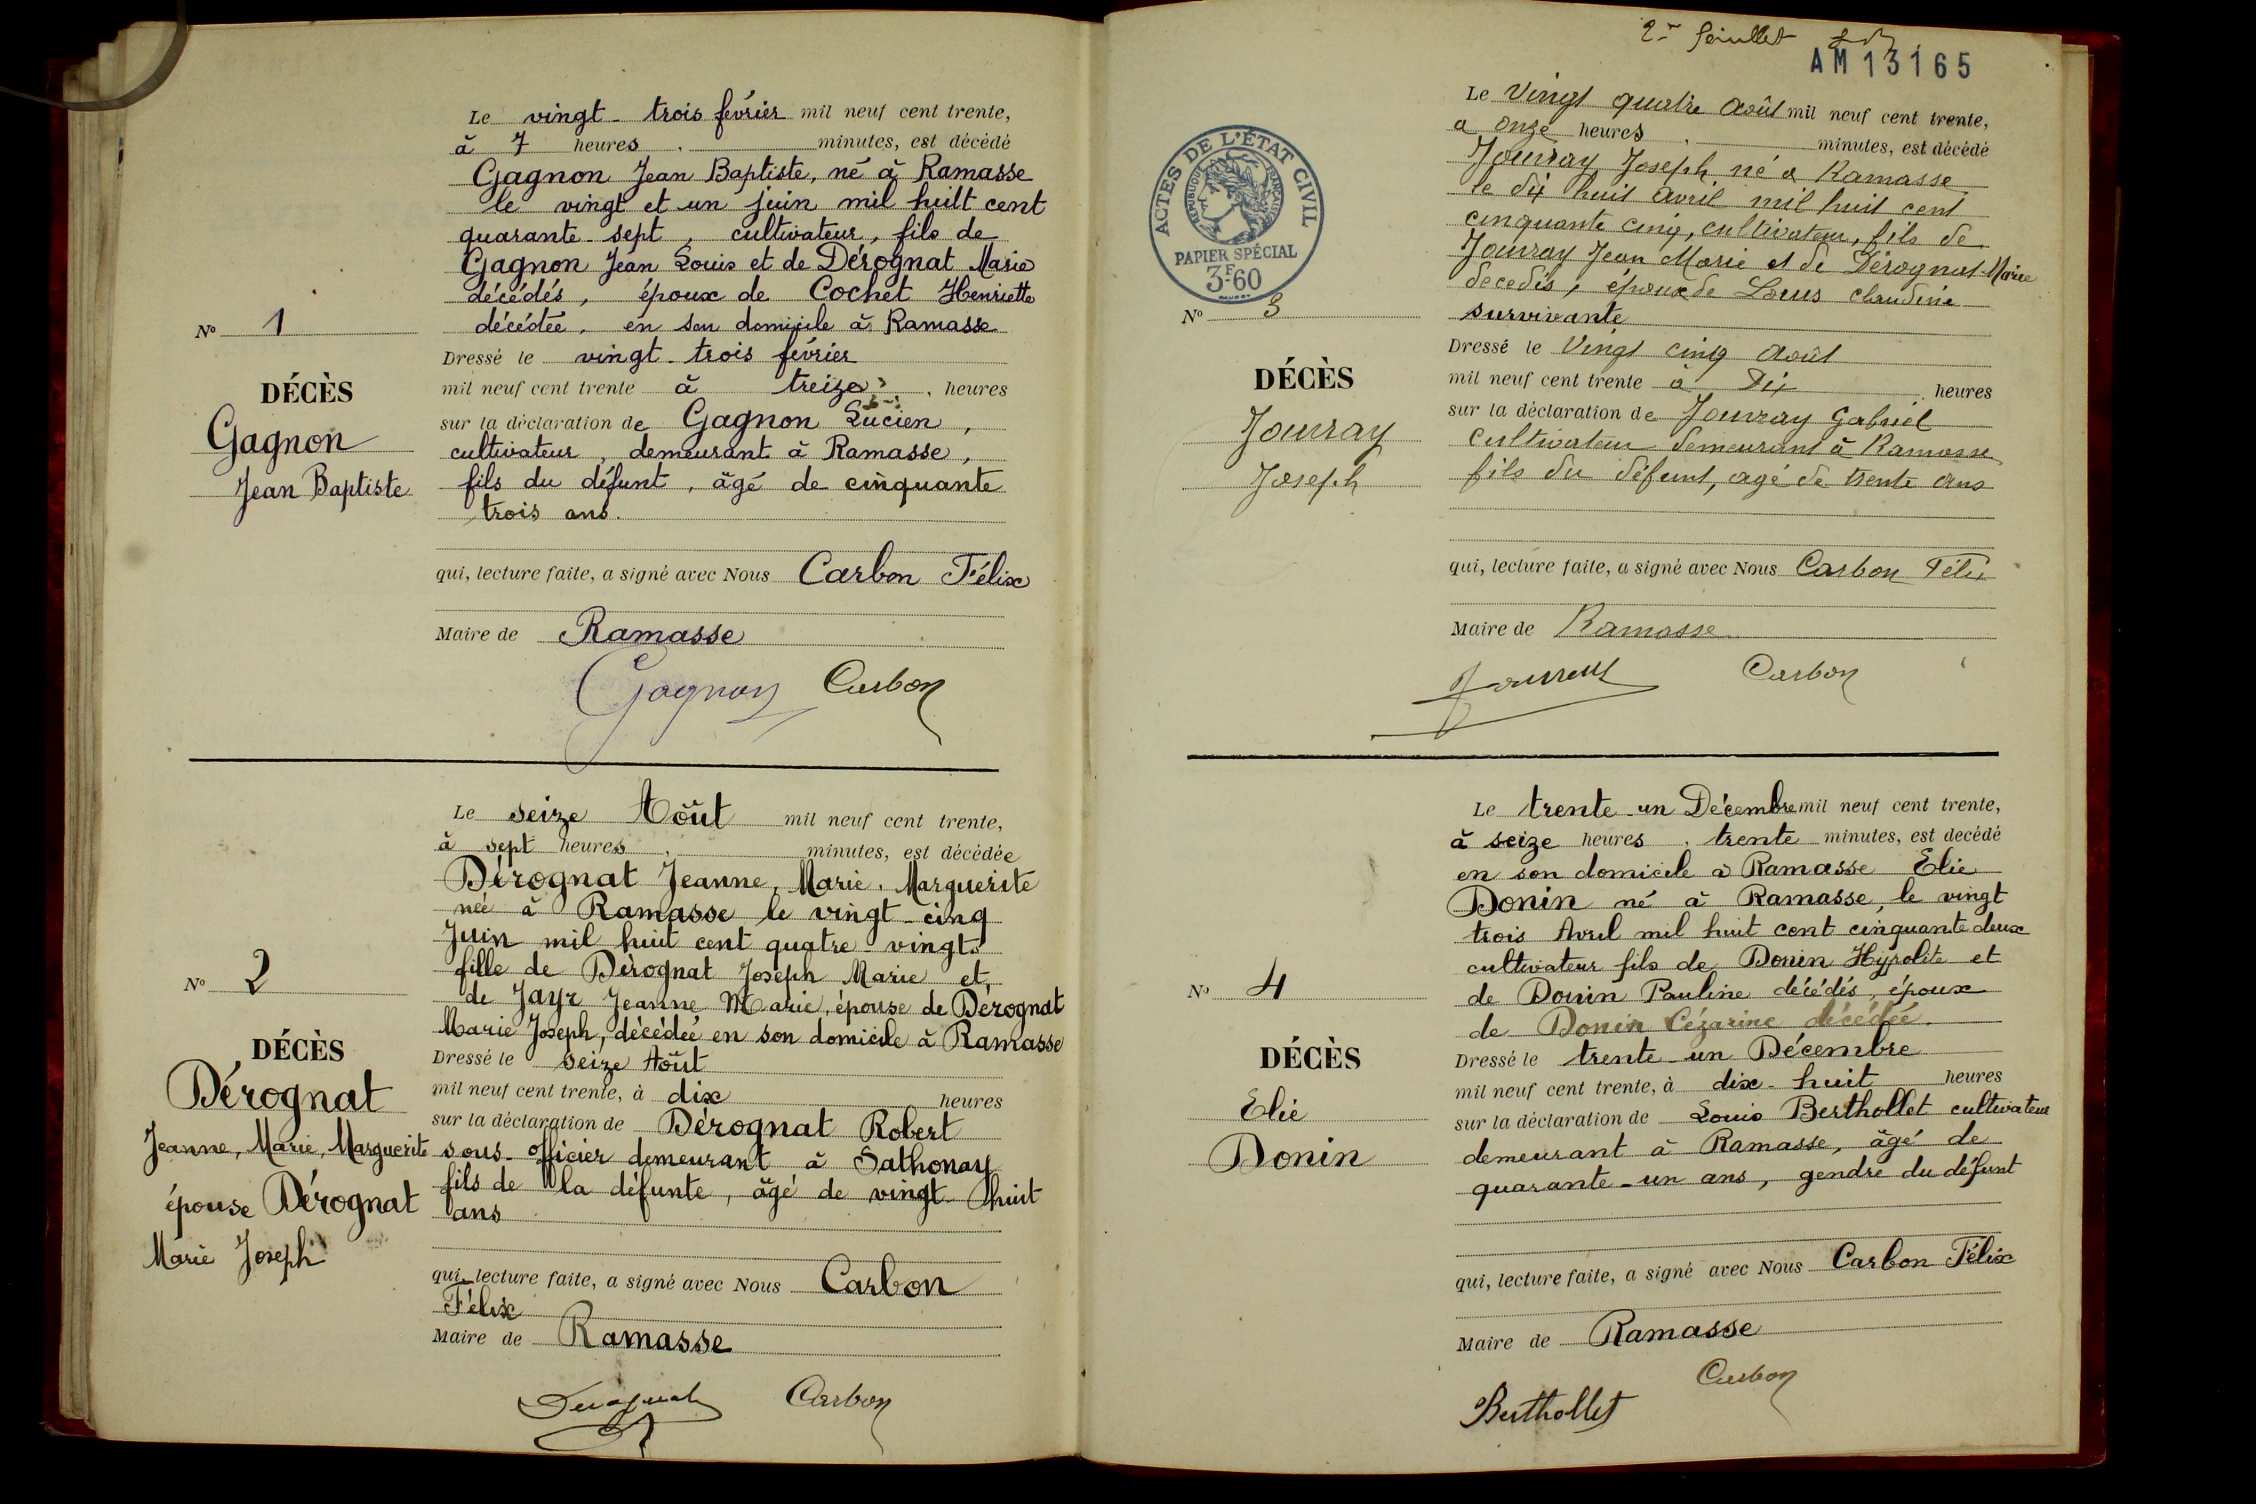 Le vingt-trois février mil neuf cent trente,
à 7 heures . minutes, est décédé
Gagnon Jean Baptiste, né à Ramasse
le vingt et un juin mil huilt cent
quarante-sept, cultivateur, fils de
Gagnon Jean Louis et de Dérognat Marie
décédés, époux de Cochet Henriette
décédée, en son domicile à Ramasse
No 1
DÉCÈS
Gagnon
Jean Baptiste
Dressé le vingt-trois février
mil neuf cent trente à treize, heures
sur la déclaration de Gagnon Lucien,
cultivateur, demeurant à Ramasse,
fils du défunt, âgé de cinquante
trois ans.
qui, lecture faite, a signé avec Nous Carbon Félix
Maire de Ramasse
Gagnon Carbon
Le seize Août mil neuf cent trente,
à sept heures, minutes, est décédée
Dérognat Jeanne, Marie, Marguerite
née à Ramasse le vingt-cinq
Juin mil huit cent quatre-vingts
fille de Dérognat Joseph Marie et
de Jayr Jeanne Marie, épouse de Dérognat
Marie Joseph, décédée en son domicile à Ramasse
No 2
DÉCÈS
Dérognat
Jeanne, Marie, Marguerite
épouse Dérognat
Marie Joseph
Dressé le seize Août
mil neuf cent trente, à dix heures
sur la déclaration de Dérognat Robert
sous-officier demeurant à Sathonay
fils de la défunte, âgé de vingt-huit
ans
qui, lecture faite, a signé avec Nous Carbon
Félix
Maire de Ramasse
Derognat Carbon
2e feuillet
AM13165
ACTES DE L'ÉTAT CIVIL
RÉPUBLIQUE FRANÇAISE
PAPIER SPÉCIAL
3F60
Le Vingt quatre Août mil neuf cent trente,
a onze heures . minutes, est décédé
Jouvray Joseph né a Ramasse
le dix huit avril mil huit cent
cinquante cinq, cultivateur, fils de
Jouvray Jean Marie et de Dérognat Marie
decedés, époux de Louis claudine
survivante
No 3
DÉCÈS
Jouvray
Joseph
Dressé le Vingt cinq Août
mil neuf cent trente à Dix heures
sur la déclaration de Jouvray Gabriel
cultivateur demeurant à Ramasse
fils du défunt, agé de trente ans
qui, lecture faite, a signé avec Nous Carbon Félix
Maire de Ramasse
Jouvray Carbon
Le trente-un Décembre mil neuf cent trente,
à seize heures, trente minutes, est decédé
en son domicile à Ramasse Elie
Donin né à Ramasse, le vingt
trois Avril mil huit cent cinquante deux
cultivateur fils de Donin Hypolite et
de Donin Pauline décédés, époux
de Donin Cézarine décédée.
No 4
DÉCÈS
Elie
Donin
Dressé le trente-un Décembre
mil neuf cent trente, à dix-huit heures
sur la déclaration de Louis Berthollet cultivateur
demeurant à Ramasse, âgé de
quarante-un ans, gendre du défunt
qui, lecture faite, a signé avec Nous Carbon Félix
Maire de Ramasse
Carbon
Berthollet